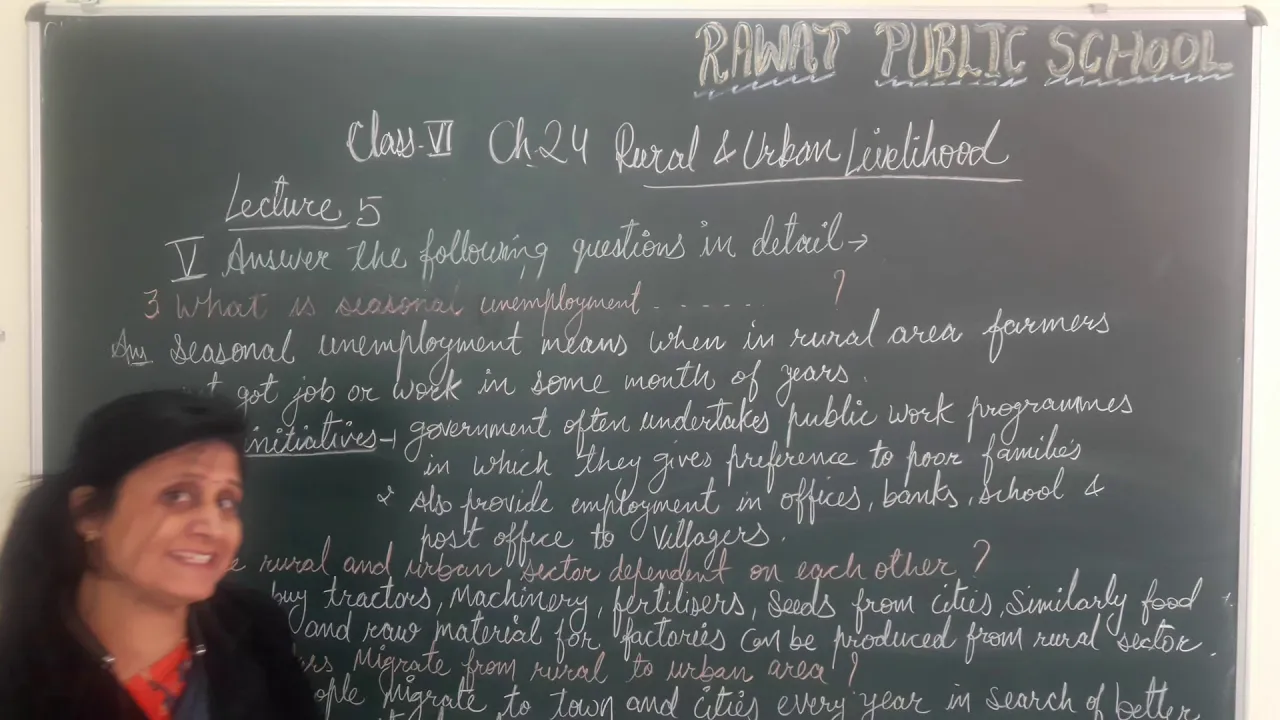 RAWAT PUBLIC SCHOOL
Class-VI Ch.24 Rural & Urban Livelihood
Lecture 5
V Answer the following questions in detail →
3. What is seasonal unemployment ....... ?
Ans Seasonal unemployment means when in rural area farmers
got job or work in some month of years.
initiatives → government often undertakes public work programmes
in which they gives preference to poor families
Also provide employment in offices, banks, school &
post office to villagers.
rural and urban sector dependent on each other ?
buy tractors, Machinery, fertilisers, Seeds from cities, Similarly food
and raw material for factories can be produced from rural sector.
Migrate from rural to urban area ?
migrate to town and cities every year in search of better